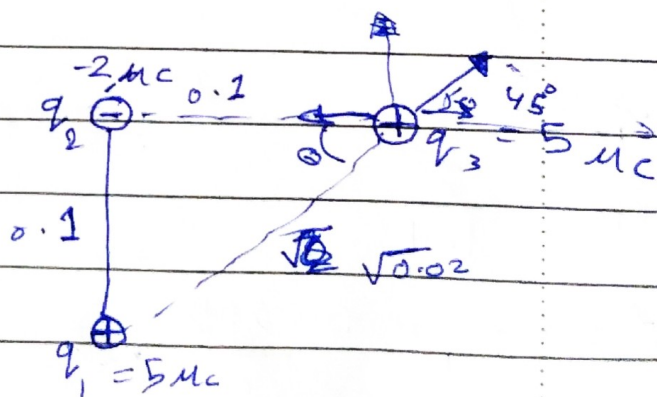 -2 μC
q₂ − 0.1
45°
+ q₃ = 5 μC
θ
0.1
√0.02
+
q₁ = 5 μC